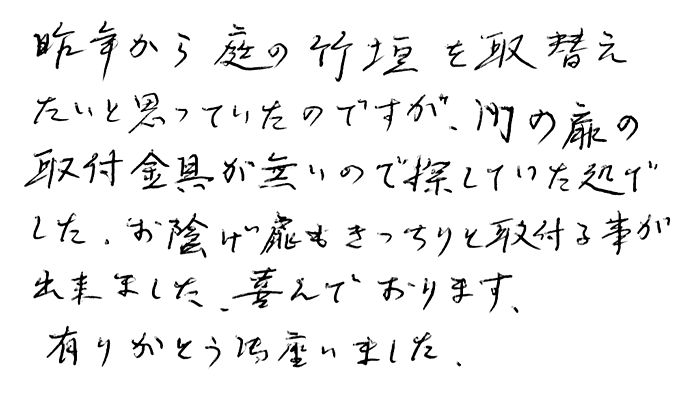 昨年から庭の竹垣を取替え
たいと思っていたのですが、門の扉の
取付金具が無いので探していた処で
した。お陰げ扉もきっちりと取付る事が
出来ました、喜んでおります、
有りがとう御座いました、